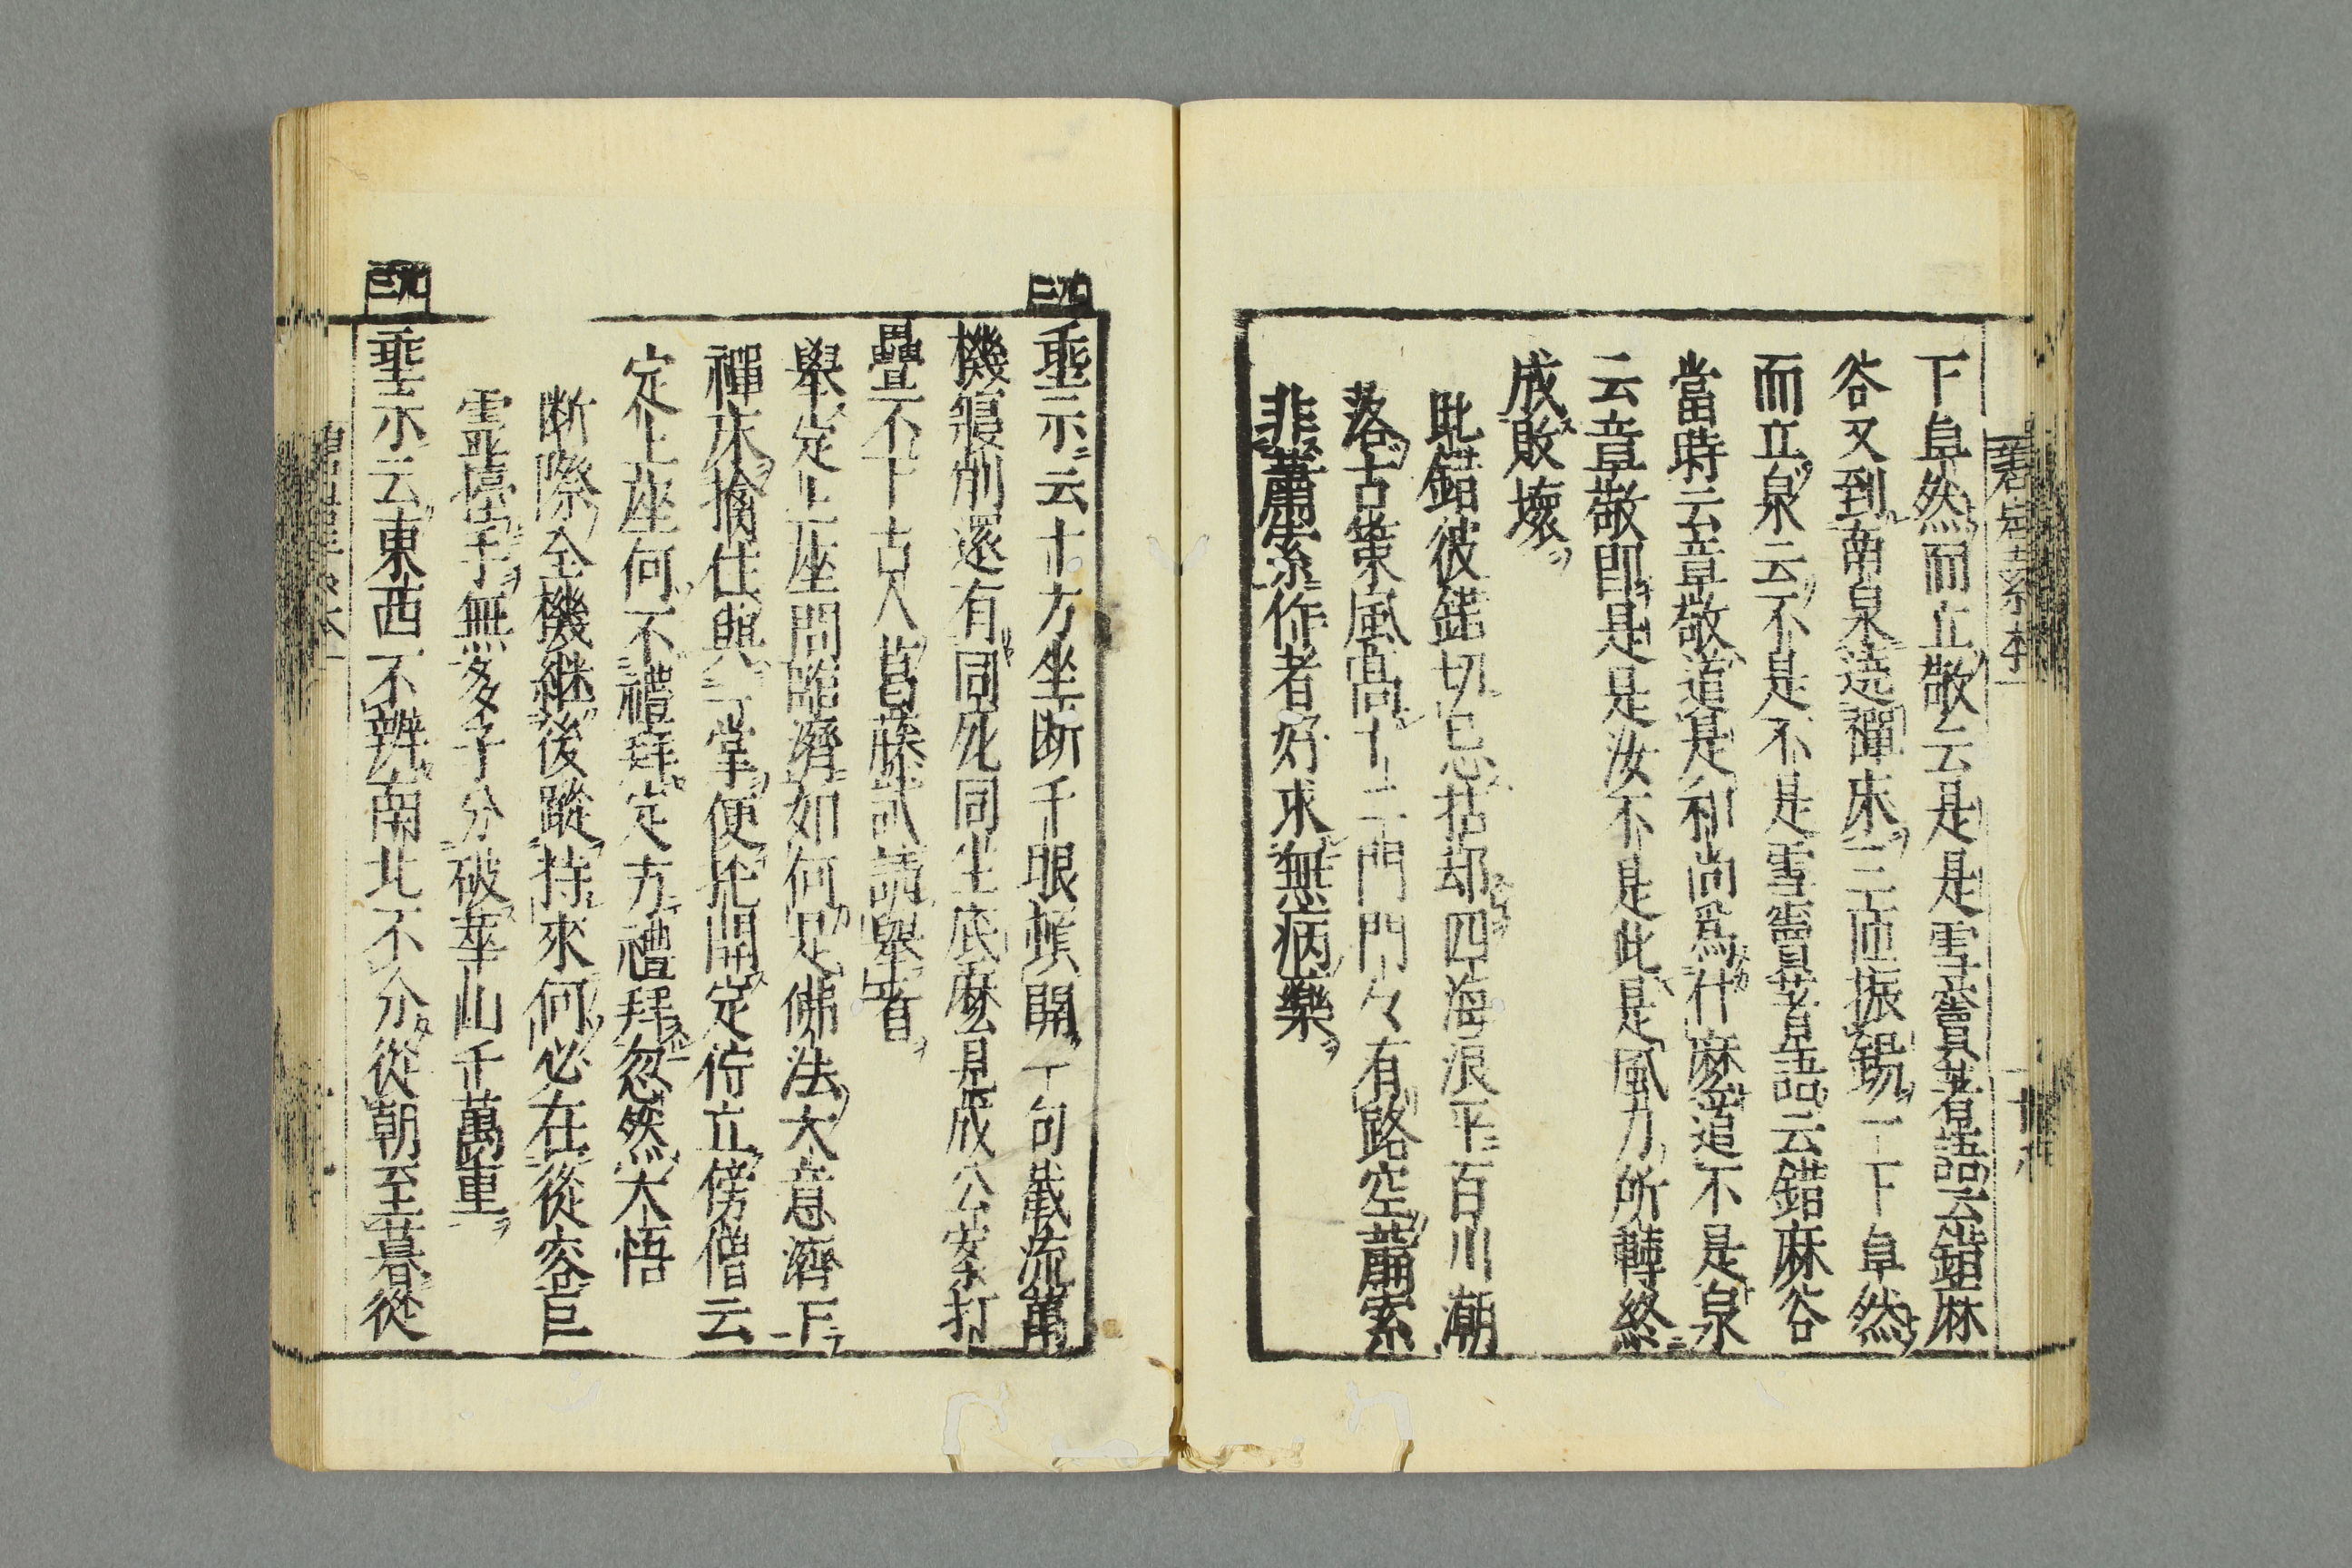 下卓然而立敬云是是雪竇著語云錯麻
谷又到南泉遶禪床三匝振錫一下卓然
而立泉云不是不是雪竇著語云錯麻谷
當時云章敬道是和尚爲什麽道不是泉
云章敬即是是汝不是此是風力所轉終
成敗壞
此錯彼錯切忌拈却四海浪平百川潮
落古策風高十二門門々有路空蕭索
非蕭索作者好求無病藥
垂示云十方坐断千眼頓開一句截流萬
機寢削還有同死同生底麽見成公案打
疊不下古人葛藤試請舉看
舉定上座問臨濟如何是佛法大意濟下
禪床擒住與一掌便托開定佇立傍僧云
定上座何不禮拜定方禮拜忽然大悟
断際全機継後蹤持來何必在從容巨
靈擡手無多子分破華山千萬重
垂示云東西不辨南北不分從朝至暮從